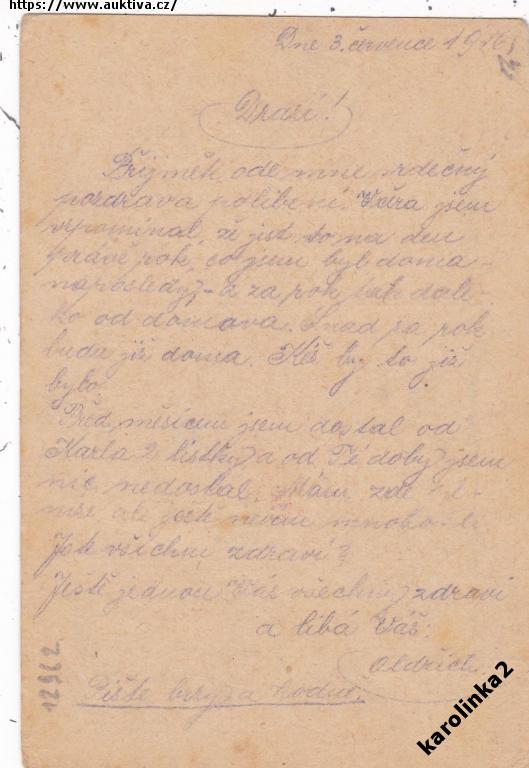 https://www.auktiva.cz/
Dne 3. července 1916
Drazí!
Přijměte ode mne srdečný
pozdrav a políbení. Včera jsem
vzpomínal, že jest tomu den
právě rok, co jsem byl doma
naposledy, - a za rok tak dale-
ko od domova. Snad za rok
budu již doma. Kéž by to již
bylo.
Před měsícem jsem dostal od
Karla 2 lístky a od Té doby jsem
nic nedostal. Mám zde
ale jestě nevím mnoho-li.
Jste všichni zdraví?
Ještě jednou Vás všechny zdraví
a líbá Váš:
Oldřich
Pište brzy a hodně.
12962
karolinka2